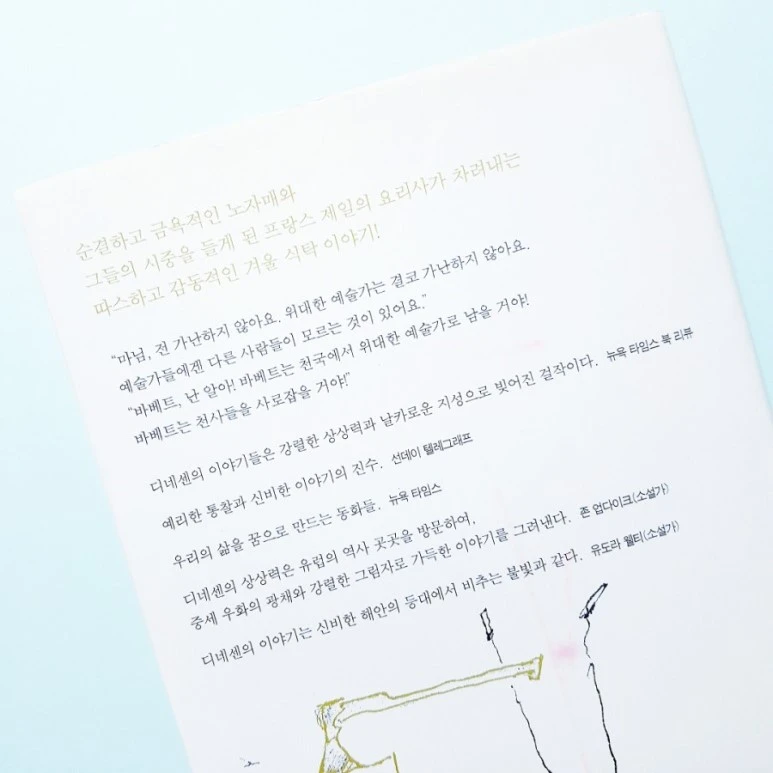 순결하고 금욕적인 노자매와
그들의 시중을 들게 된 프랑스 제일의 요리사가 차려내는
따스하고 감동적인 겨울 식탁 이야기!
“마님, 전 가난하지 않아요. 위대한 예술가는 결코 가난하지 않아요.
예술가들에겐 다른 사람들이 모르는 것이 있어요.”
“바베트, 난 알아! 바베트는 천국에서 위대한 예술가로 남을 거야!
바베트는 천사들을 사로잡을 거야!”
디네센의 이야기들은 강렬한 상상력과 날카로운 지성으로 빚어진 걸작이다. 뉴욕 타임스 북 리뷰
예리한 통찰과 신비한 이야기의 진수. 선데이 텔레그래프
우리의 삶을 꿈으로 만드는 동화들. 뉴욕 타임스
디네센의 상상력은 유럽의 역사 곳곳을 방문하여,
중세 우화의 광채와 강렬한 그림자로 가득한 이야기를 그려낸다. 존 업다이크(소설가)
디네센의 이야기는 신비한 해안의 등대에서 비추는 불빛과 같다. 유도라 웰티(소설가)